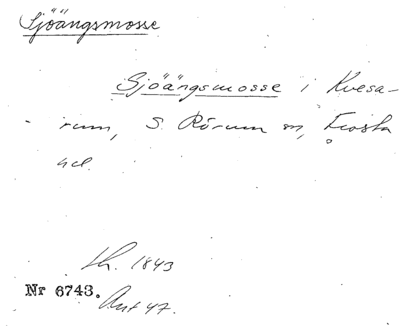 Sjöängsmosse
Sjöängsmosse i Kvesa-
rum, S. Rörum sn, Frosta
hd.
lh. 1843
Nr 6743.
Ant 47.